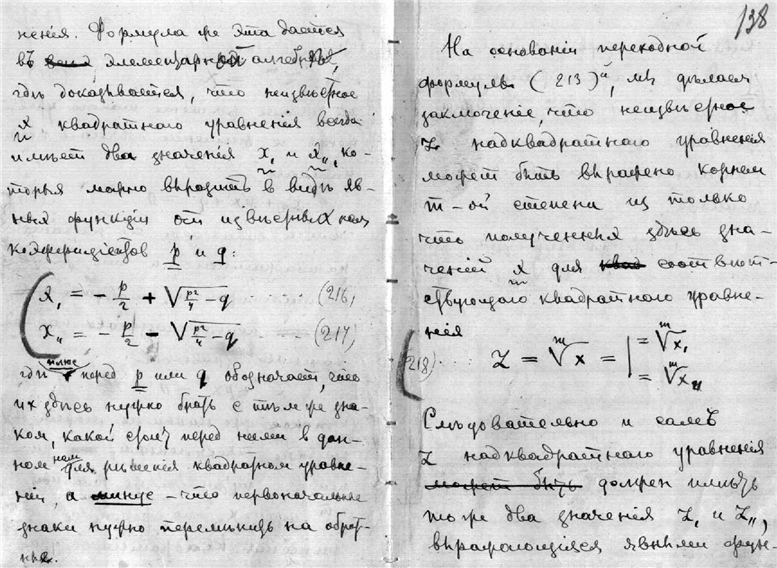 ненія. Формула же эта дается
въ элементарной алгебрѣ,
гдѣ доказывается, что неизвѣстное
x квадратнаго уравненія всегда
имѣетъ два значенія x, и x,,, ко-
торыя можно выразить в видѣ яв-
ныхъ функцій отъ извѣстныхъ намъ
коэффиціентов p и q:
x, = - p/2 + √(p²/4 - q) (216)
x,, = - p/2 - √(p²/4 - q) (217)
плюс
гдѣ перед p или q обозначает, что
их здѣсь нужно брать с тѣм же зна-
ком, какой стоит перед ними в дан-
ном нам для рѣшенія квадратном уравне-
ніи, а минус - что первоначальные
знаки нужно перемѣнить на обрат-
ные.
138
На основаніи переходной
формулы (213), мы дѣлаем
заключеніе, что неизвѣстное
z надквадратнаго уравненія
может быть выражено корнем
m-ой степени из только
что полученныя здѣсь зна-
ченій x для соотвѣт-
ствующаго квадратнаго уравне-
нія
(218) z = ᵐ√x = | = ᵐ√x,
= ᵐ√x,,
Слѣдовательно и самъ
z надквадратнаго уравненія
может быть должен имѣть
то же два значенія z, и z,,,
выражающіяся явными фун-